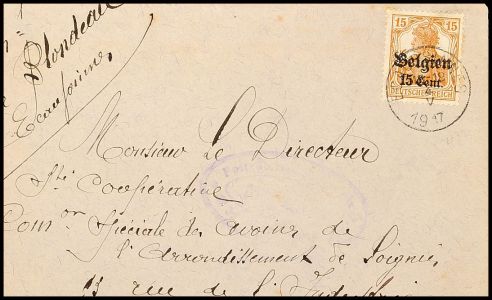 Blondeau
Ecaussinnes
15 15
Belgien
15 Cent.
DEUTSCHES REICH
1917
Monsieur Le Directeur
Sté Coopérative
Comon Spéciale des avoines de
l'arrondissement de Soignies
13 rue de l'Industrie